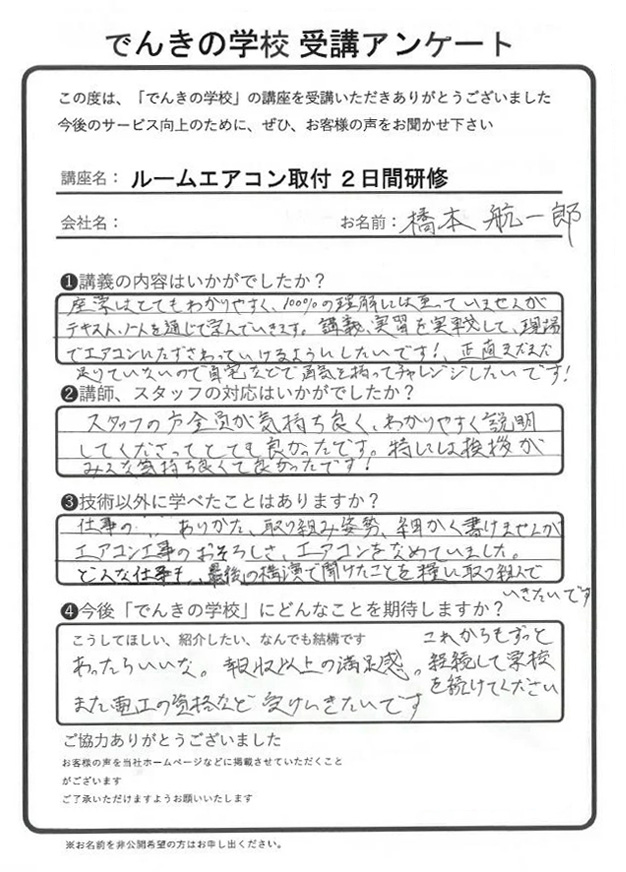 でんきの学校 受講アンケート
この度は、「でんきの学校」の講座を受講いただきありがとうございました
今後のサービス向上のために、ぜひ、お客様の声をお聞かせ下さい
講座名： ルームエアコン取付 2日間研修
会社名： お名前： 橋本 航一郎
❶講義の内容はいかがでしたか？
座学はとてもわかりやすく、100%の理解には至っていませんが
テキスト、ノートを通じて学んでいきます。講義、実習を実践して、現場
でエアコンにたずさわっていけるようにしたいです！、正直まだまだ
足りていないので自宅などで勇気を持ってチャレンジしたいです！
❷講師、スタッフの対応はいかがでしたか？
スタッフの方全員が気持ち良く、わかりやすく説明
してくださってとても良かったです。特には挨拶が
みんな気持ち良くて良かったです！
❸技術以外に学べたことはありますか？
仕事の ありかた、取り組み姿勢、細かく書けませんが
エアコン工事のおそろしさ、エアコンをなめていました。
どんな仕事も、最後の講演で聞けたことを糧に取り組んで
いきたいです
❹今後「でんきの学校」にどんなことを期待しますか？
こうしてほしい、紹介したい、なんでも結構です
あったらいいな。報収以上の満足感。
また電工の資格など 受けいきたいです
これからもずっと
経続して学校
を続けてください
ご協力ありがとうございました
お客様の声を当社ホームページなどに掲載させていただくこと
がございます
ご了承いただけますようお願いいたします
※お名前を非公開希望の方はお申し出ください。